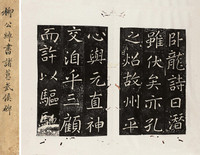 臥龍詩曰潛
雖伏矣亦孔
之炤故州平
心與元直神
交洎乎三顧
而許以驅馳
柳公綽書諸葛武侯